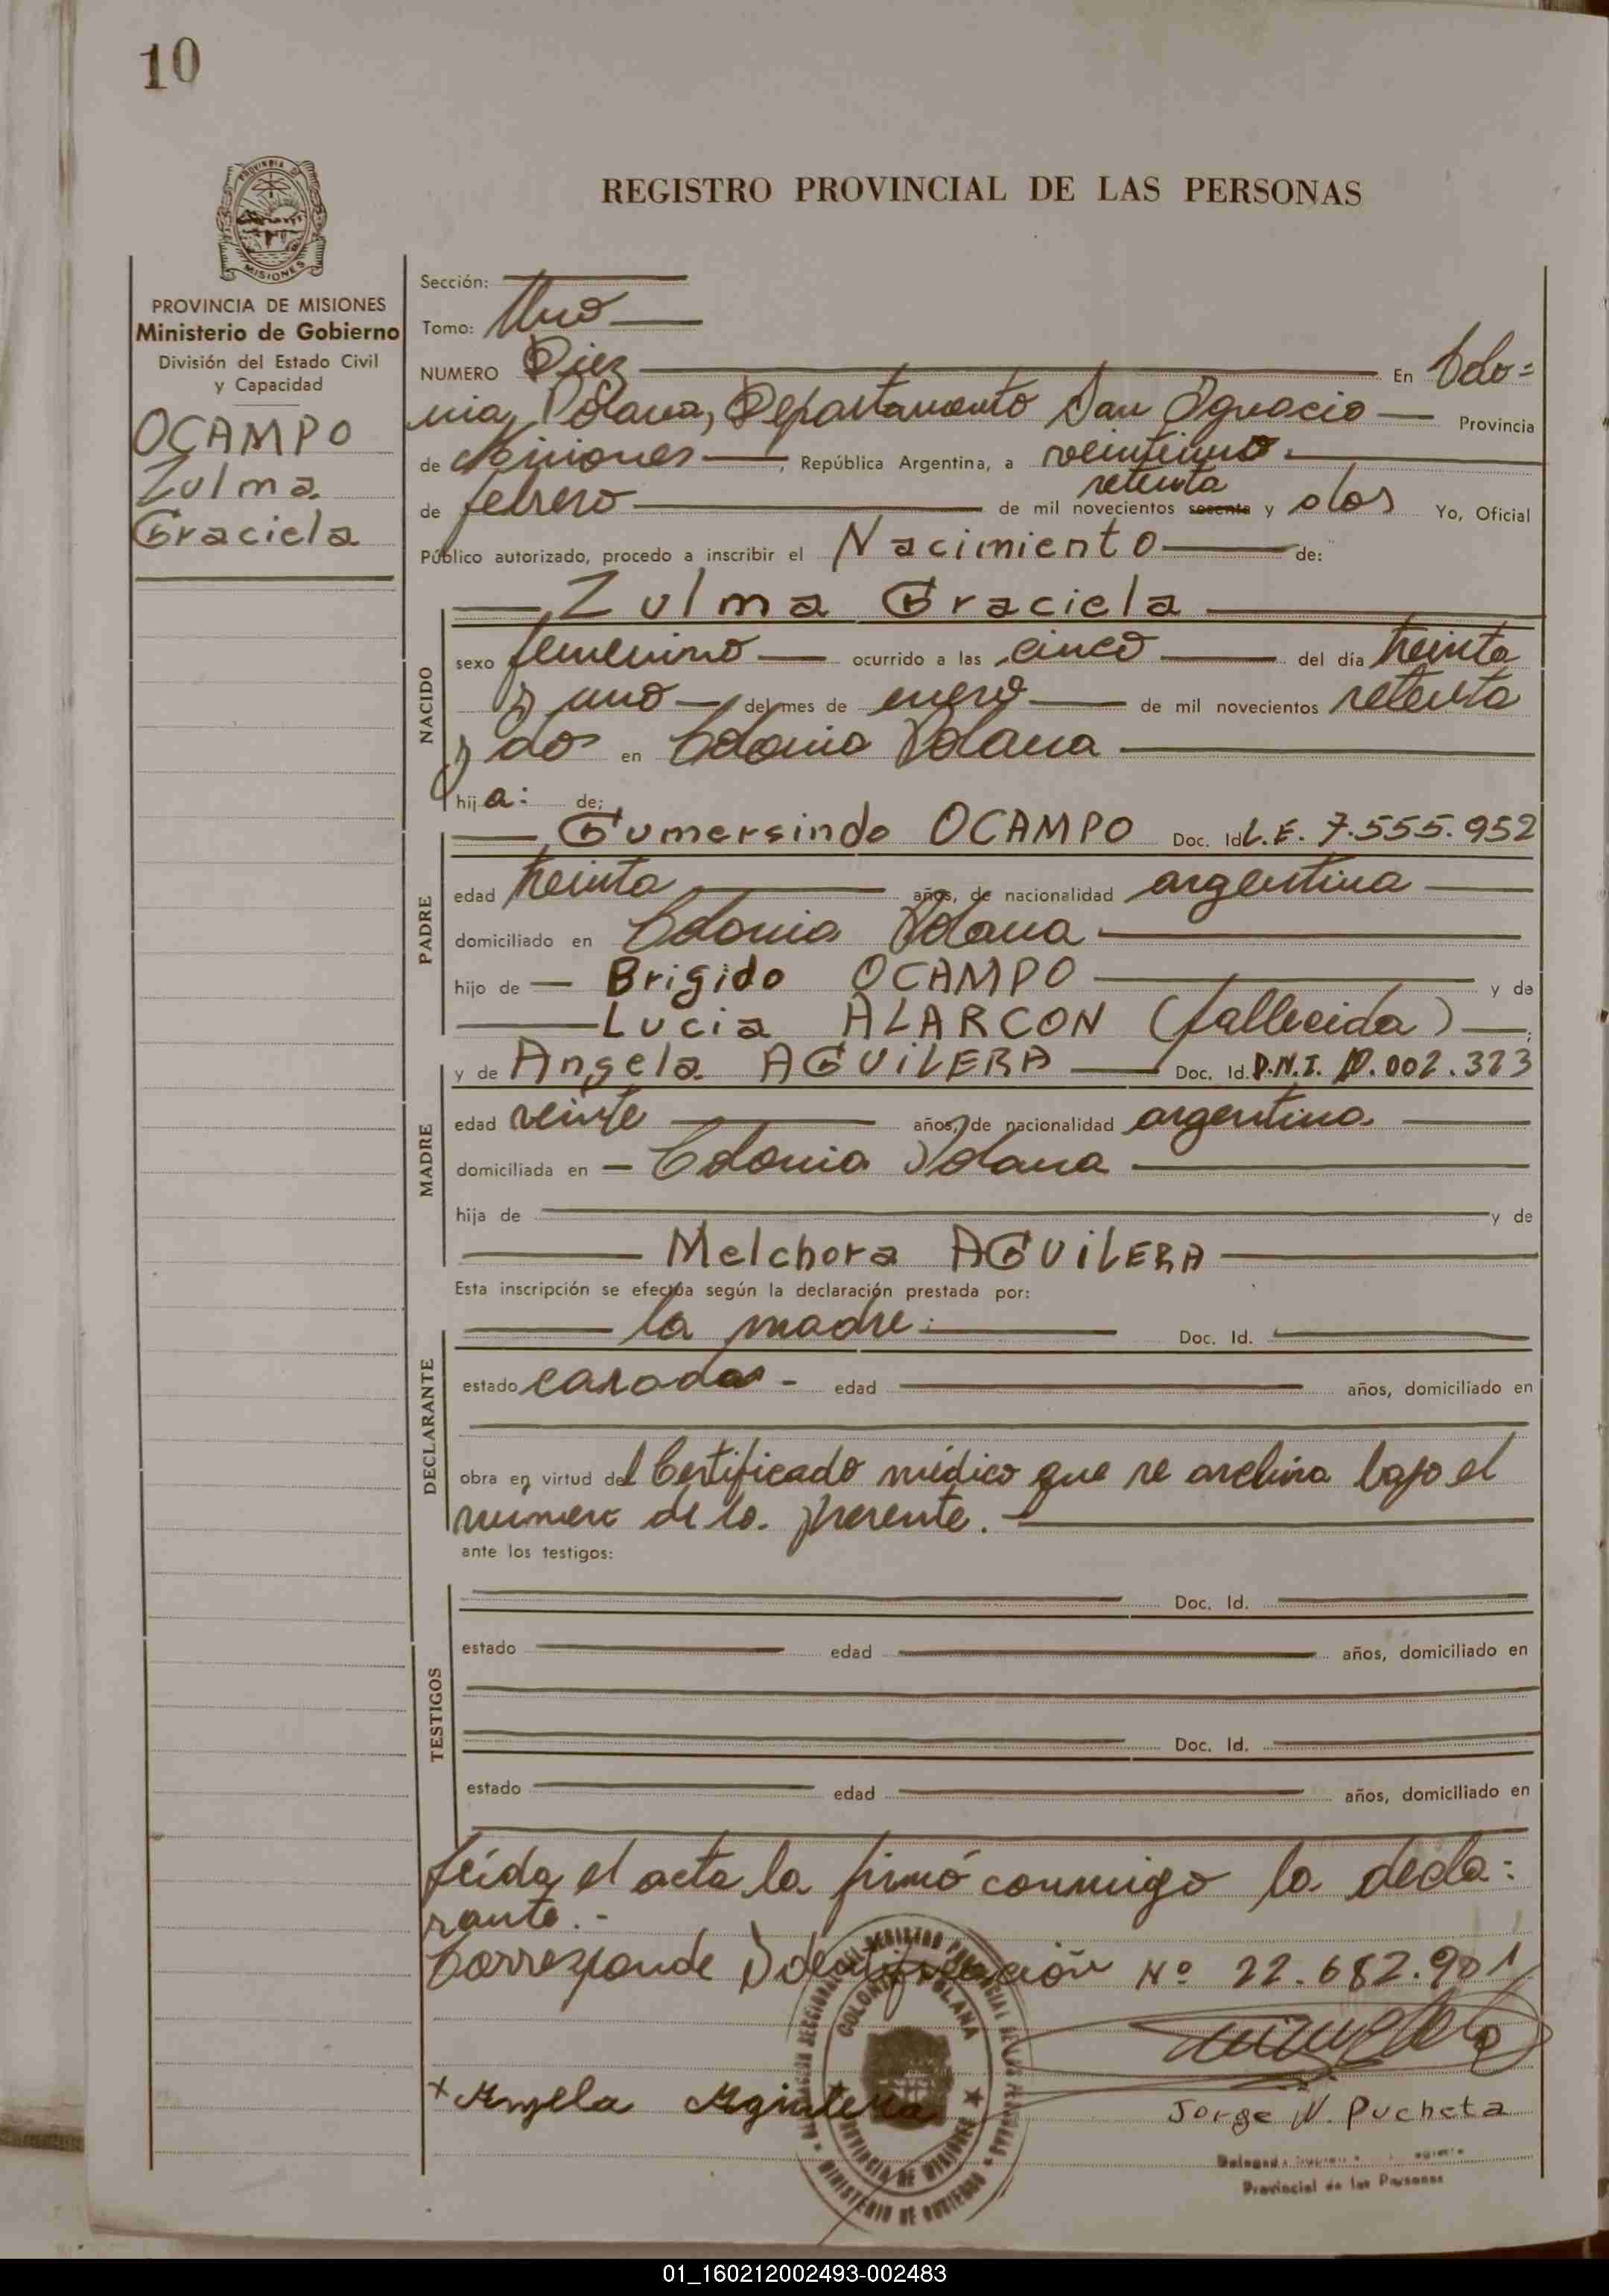 10
PROVINCIA DE MISIONES
Ministerio de Gobierno
División del Estado Civil
y Capacidad
OCAMPO
Zulma
Graciela
REGISTRO PROVINCIAL DE LAS PERSONAS
Sección:
Tomo: Uno
NUMERO Diez En Colo=
nia Polana, Departamento San Ignacio Provincia
de Misiones, República Argentina, a veintiuno
setenta
de febrero de mil novecientos sesenta y dos Yo, Oficial
Público autorizado, procedo a inscribir el Nacimiento de:
Zulma Graciela
NACIDO
sexo femenino ocurrido a las cinco del día treinta
y uno del mes de enero de mil novecientos setenta
y dos en Colonia Polana
hija: de:
PADRE
Gumersindo OCAMPO Doc. Id L.E. 7.555.952
edad treinta años, de nacionalidad argentina
domiciliado en Colonia Polana
hijo de Brigido OCAMPO y de
Lucia ALARCON (fallecida);
MADRE
y de Angela AGUILERA Doc. Id. D.N.I.
edad veinte años, de nacionalidad argentina
domiciliada en Colonia Polana
hija de y de
Melchora AGUILERA
Esta inscripción se efectúa según la declaración prestada por:
DECLARANTE
la madre. Doc. Id.
estado casada - edad años, domiciliado en
obra en virtud del Certificado médico que se archiva bajo el
numero de la presente.
ante los testigos:
TESTIGOS
Doc. Id.
estado edad años, domiciliado en
Doc. Id.
estado edad años, domiciliado en
Leída el acta la firmó conmigo la decla=
rante.-
Corresponde Identificación Nº 22.682.901
COLONIA POLANA
PROVINCIA DE MISIONES
MINISTERIO DE GOBIERNO
x Angela Aguilera
Jorge N. Pucheta
Provincial de las Personas
01_160212002493-002483